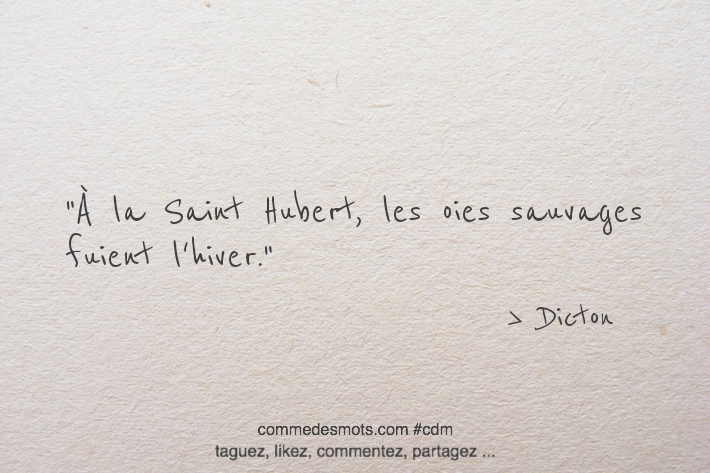 "À la Saint Hubert, les oies sauvages
fuient l'hiver."
> Dicton
commedesmots.com #cdm
taguez, likez, commentez, partagez ...